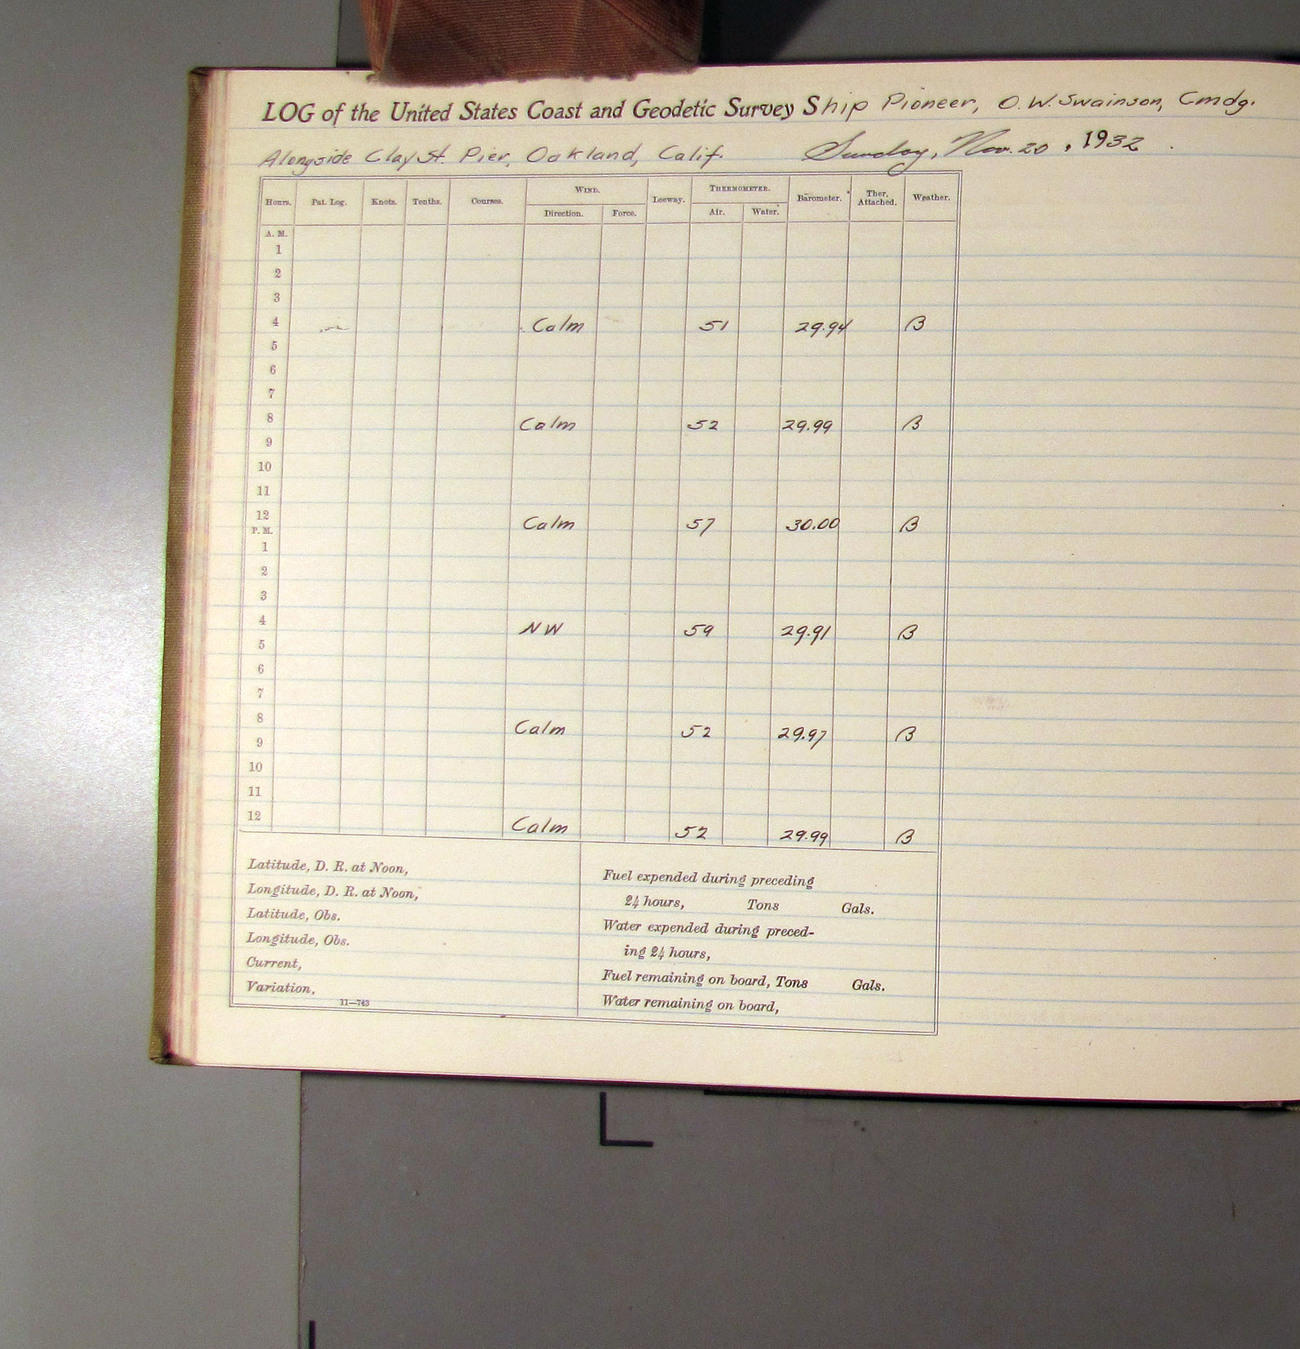 LOG of the United States Coast and Geodetic Survey Ship Pioneer, O. W. Swainson, Cmdg.
Alongside Clay St. Pier, Oakland, Calif. Sunday, Nov. 20, 1932.
Hours. Pat. Log. Knots. Tenths. Courses. WIND. Direction. Force. Leeway. THERMOMETER. Air. Water. Barometer. Ther. Attached. Weather.
A. M.
1
2
3
4 Calm 51 29.94 B
5
6
7
8 Calm 52 29.99 B
9
10
11
12 Calm 57 30.00 B
P. M.
1
2
3
4 NW 59 29.91 B
5
6
7
8 Calm 52 29.97 B
9
10
11
12 Calm 52 29.99 B
Latitude, D. R. at Noon,
Longitude, D. R. at Noon,
Latitude, Obs.
Longitude, Obs.
Current,
Variation,
11—763
Fuel expended during preceding
24 hours, Tons Gals.
Water expended during preced-
ing 24 hours,
Fuel remaining on board, Tons Gals.
Water remaining on board,